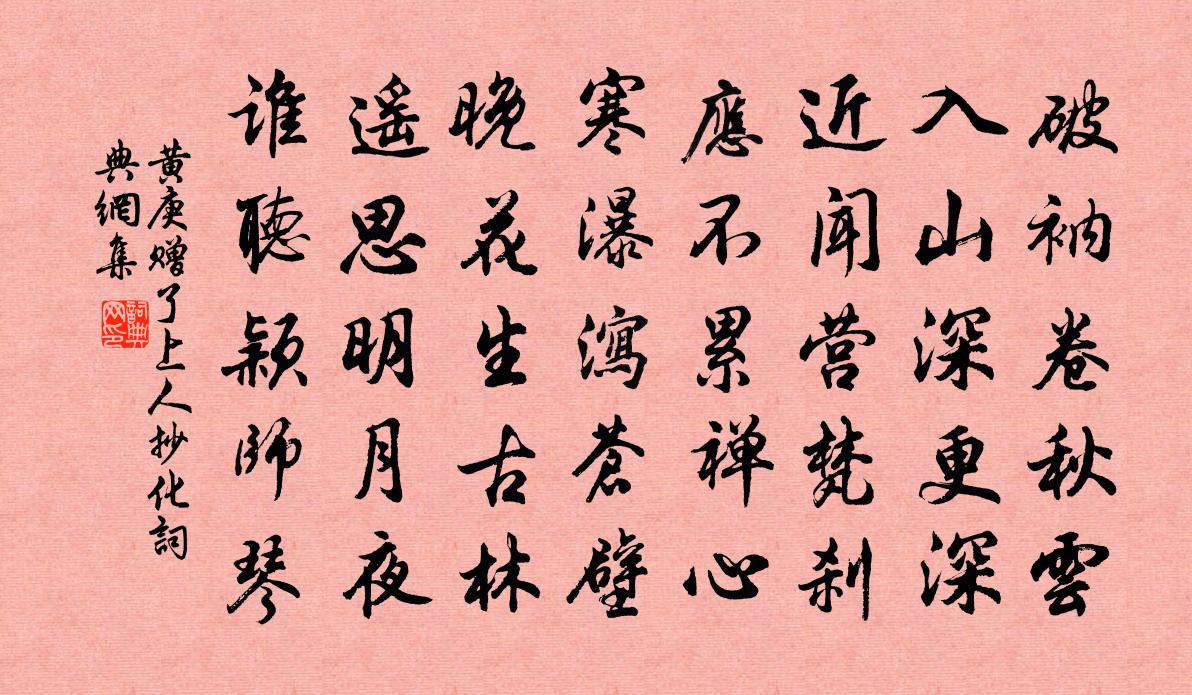 破衲卷秋雲
入山深更深
近闻营梵刹
應不累禅心
寒瀑瀉蒼壁
晚花生古林
遥思明月夜
谁聽颖師琴
黄庚赠了上人抄化詞
典網集
詞典
网印